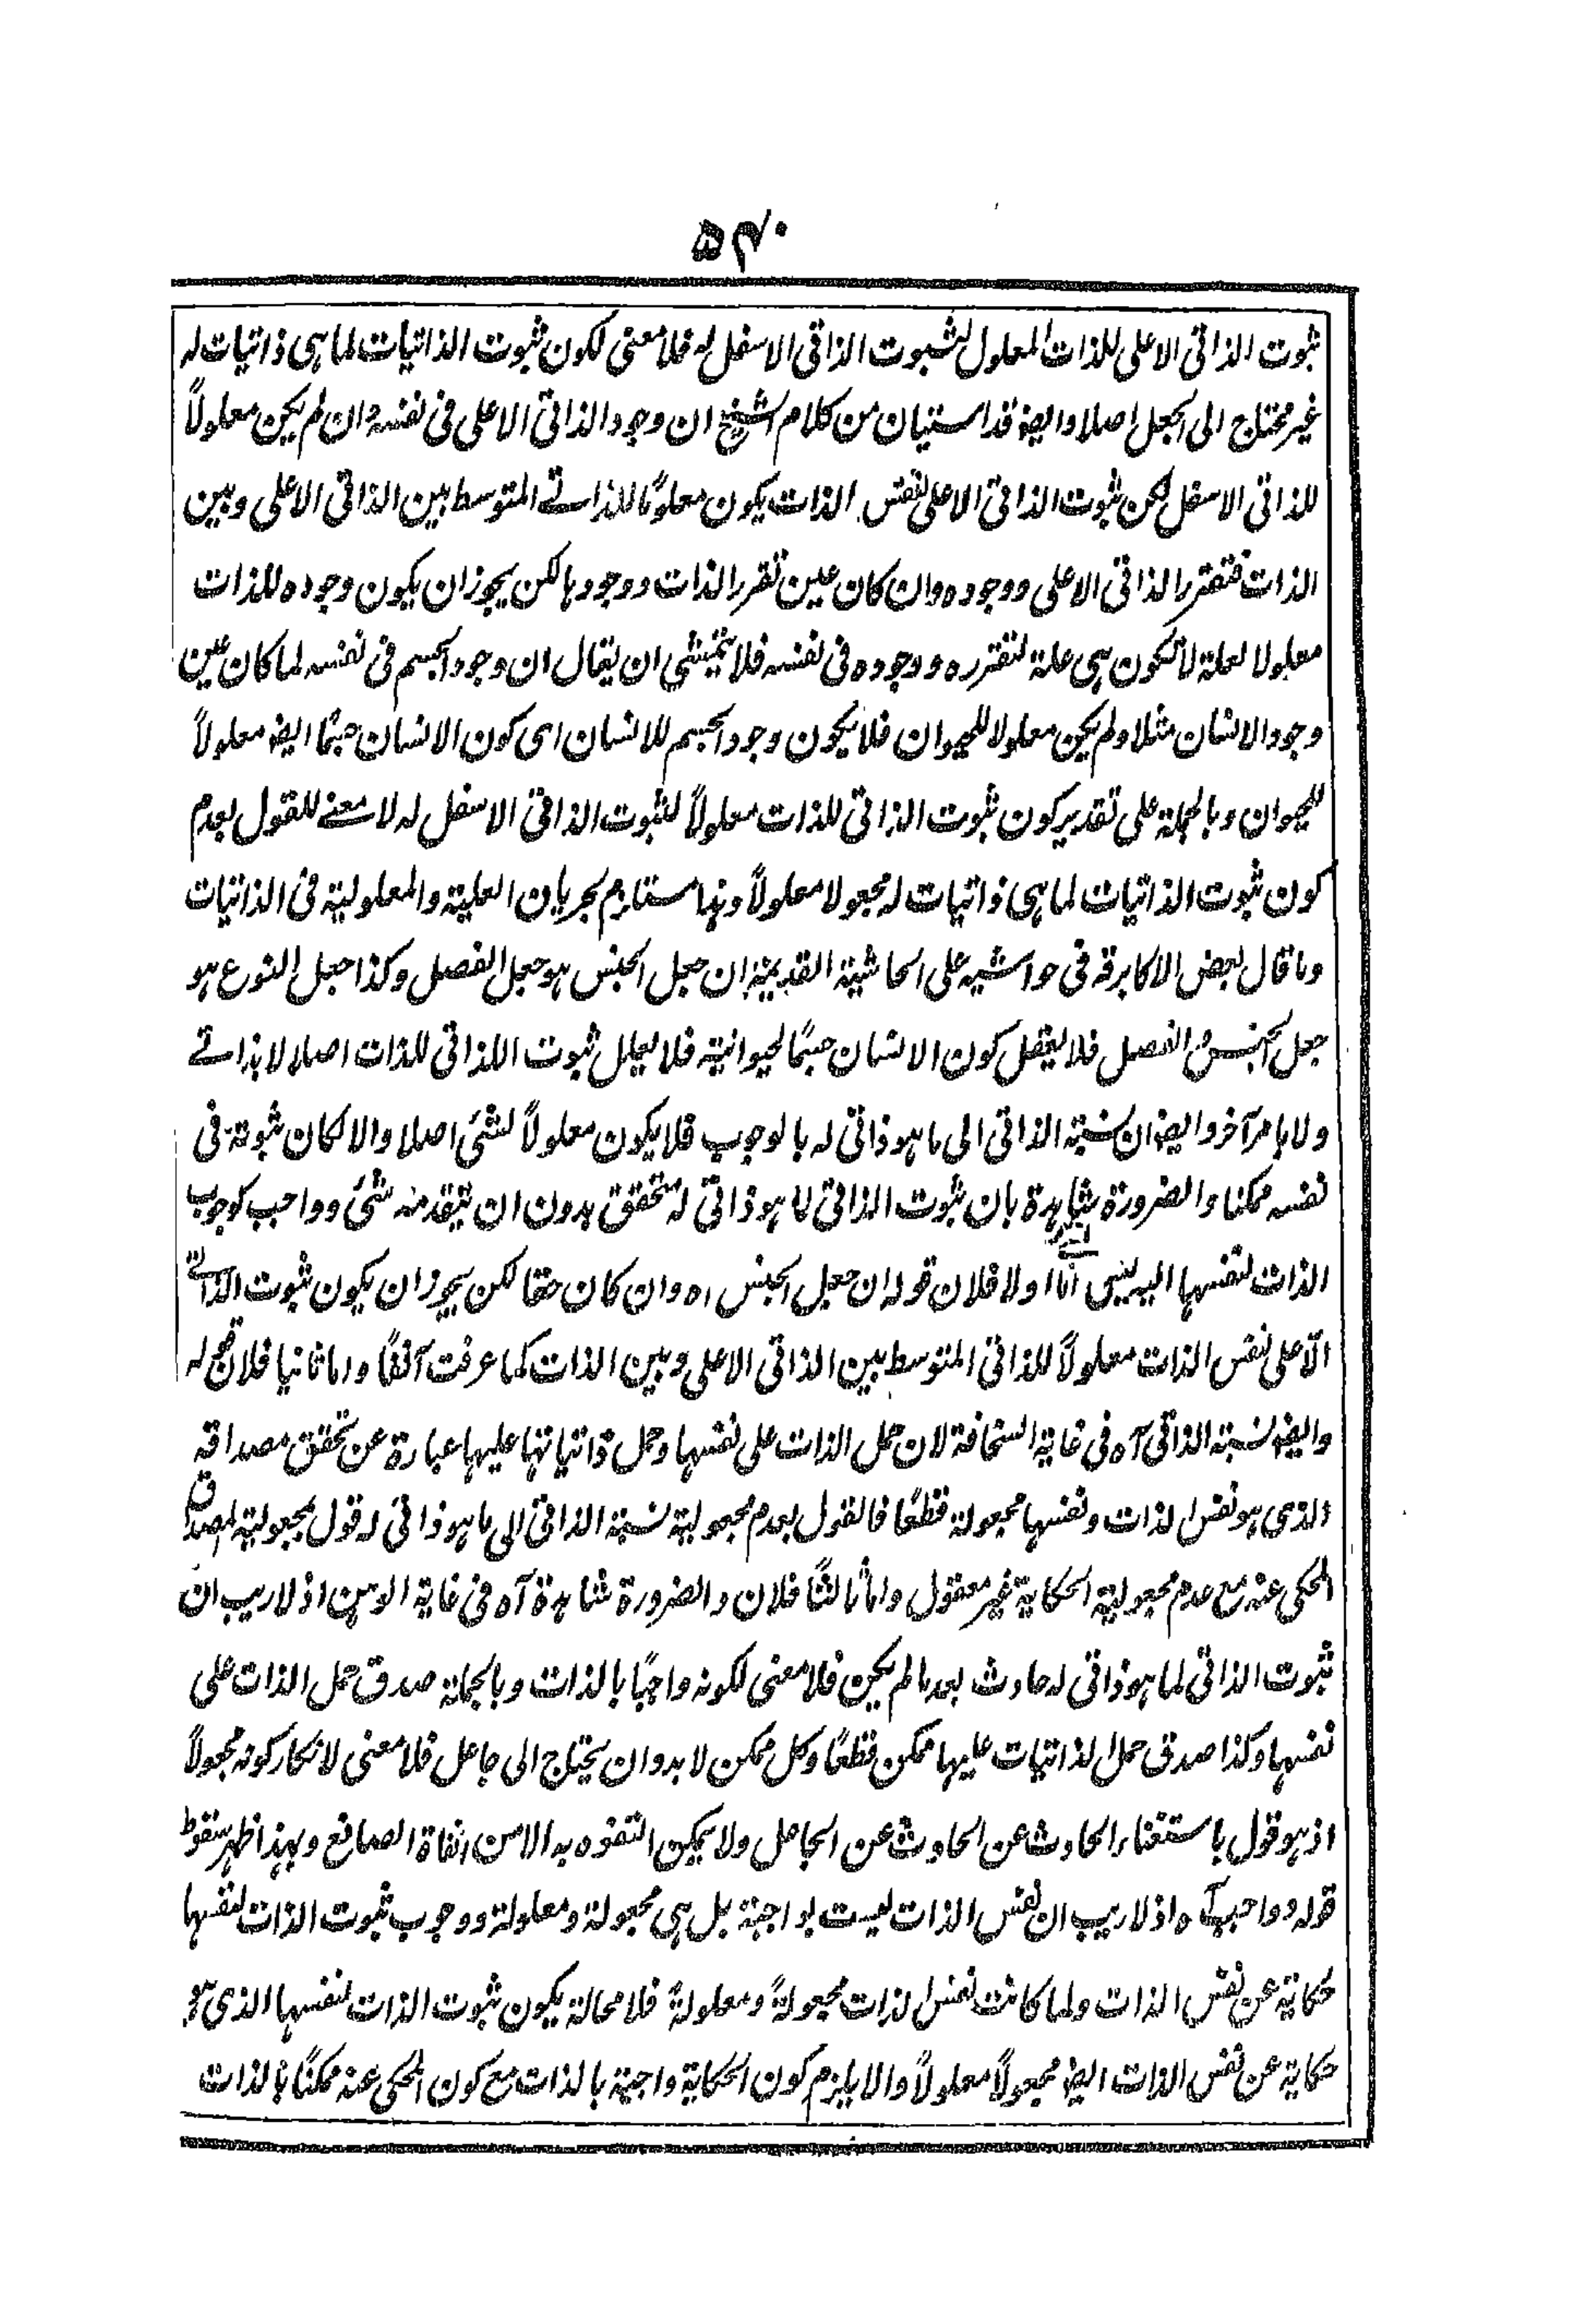 ۵۴۰
ثبوت الذاتى الاعلى للذات المعلول لثبوت الذاتى الاسفل له فلا معنى لكون ثبوت الذاتيات لما هى ذاتيات له
غير محتاج الى الجعل اصلا وايضا قد استبان من كلام الشيخ ان وجود الذاتى الاعلى فى نفسه وان لم يكن معلولاً
للذاتى الاسفل لكن ثبوت الذاتى الاعلى لنفس الذات يكون معلولًا للذاتے المتوسط بين الذاتى الاعلى وبين
الذات فتقرر الذاتى الاعلى ووجوده وان كان عين تقرر الذات ووجودها لكن يجوز ان يكون وجوده للذات
معلولا لعلة لا تكون هى علة لتقرره ووجوده فى نفسه فلا يتمشى ان يقال ان وجود الجسم فى نفسه لما كان عين
وجود الانسان مثلا ولم يكن معلولا للحيوان فلا يكون وجود الجسم للانسان اى كون الانسان جسمًا ايضا معلولاً
للحيوان وبالجملة على تقدير كون ثبوت الذاتى للذات معلولاً لثبوت الذاتى الاسفل له لا معنے للقول بعدم
كون ثبوت الذاتيات لما هى ذاتيات له مجعولا معلولاً وهذا مستلزم لجريان العلية والمعلولية فى الذاتيات
وما قال بعض الاكابر قه فى حواشيه على الحاشية القديمة ان جعل الجنس هو جعل الفصل وكذا جعل النوع هو
جعل الجنس والفصل فلا يعقل كون الانسان جسمًا لحيوانية فلا يعلل ثبوت اللذاتى للذات اصلا لا بذاتے
ولا بامر آخر وايضا ان نسبة الذاتى الى ما هو ذاتى له بالوجوب فلا يكون معلولاً لشئ اصلا والا لكان ثبوته فى
نفسه ممكنا والضرورة شاهدة بان ثبوت الذاتى لما هو ذاتى له متحقق بدون ان يتقدمه شئ وواجب كوجوب
الذات لنفسها اليه ليس اما اولا فلان قوله ان جعل الجنس اه وان كان حقا لكن يجوز ان يكون ثبوت الذاتے
الاعلى لنفس الذات معلولاً للذاتى المتوسط بين الذاتى الاعلى وبين الذات كما عرفت آنفًا واما ثانيا فلان قوله
وايضا نسبة الذاتى آه فى غاية السخافة لان حمل الذات على نفسها وحمل ذاتياتها عليها عبارة عن تحقق مصداقه
الذى هو نفس الذات ونفسها مجعولة قطعًا فالقول بعدم مجعولية نسبة الذاتى الى ما هو ذاتى له قول بمجعولية المصداق
المحكى عنه مع عدم مجعولية الحكاية غير معقول واما ثالثًا فلان والضرورة شاهدة آه فى غاية الوهن اذ لا ريب ان
ثبوت الذاتى لما هو ذاتى له حادث بعد ما لم يكن فلا معنى لكونه واجبًا بالذات وبالجملة صدق حمل الذات على
نفسها وكذا صدق حمل الذاتيات عليها ممكن قطعًا وكل ممكن لا بد وان يحتاج الى جاعل فلا معنى لانكار كونه مجعولاً
اذ هو قول باستغناء الحادث عن الحادث عن الجاعل ولا يمكن التفوه به الا من انفاة الصانع وبهذا ظهر سقوط
قوله وواجب آه اذ لا ريب ان نفس الذات ليست بواجبة بل هى مجعولة ومعلولة ووجوب ثبوت الذات لنفسها
حكاية عن نفس الذات ولما كانت نفس الذات مجعولةً ومعلولةً فلا محالة يكون ثبوت الذات لنفسها الذى هو
حكاية عن نفس الذات ايضا مجعولاً معلولاً والا يلزم كون الحكاية واجبة بالذات مع كون المحكى عنه ممكنًا بالذات